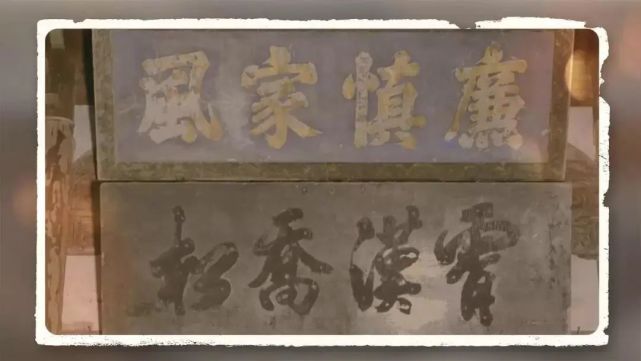 廉慎家風
霄漢喬松